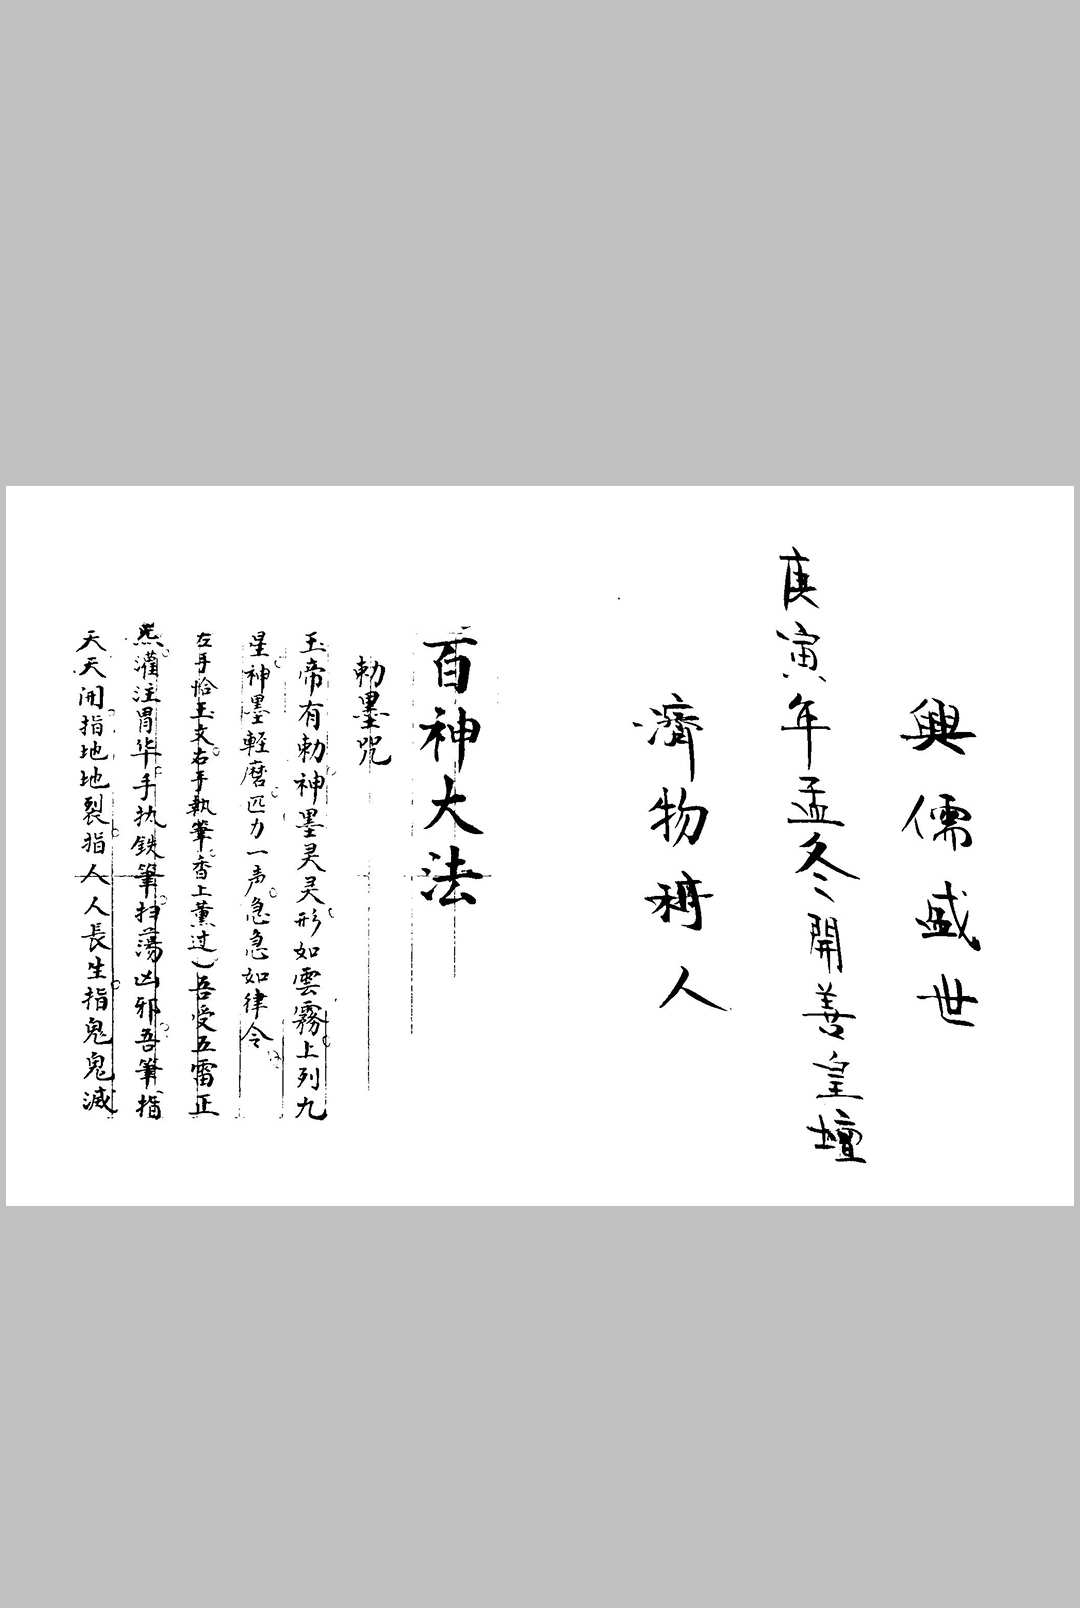 興儒盛世
庚寅年孟冬開善皇壇
濟物稱人
百神大法
勅墨咒
玉帝有勅神墨灵灵形如雲霧上列九
星神墨軽磨匹力一声急急如律令
左手恰玉文右手執筆香上薰过)吾受五雷正
炁灌注胃华手执鉄筆扫蕩凶邪吾筆指
天天開指地地裂指人人長生指鬼鬼滅